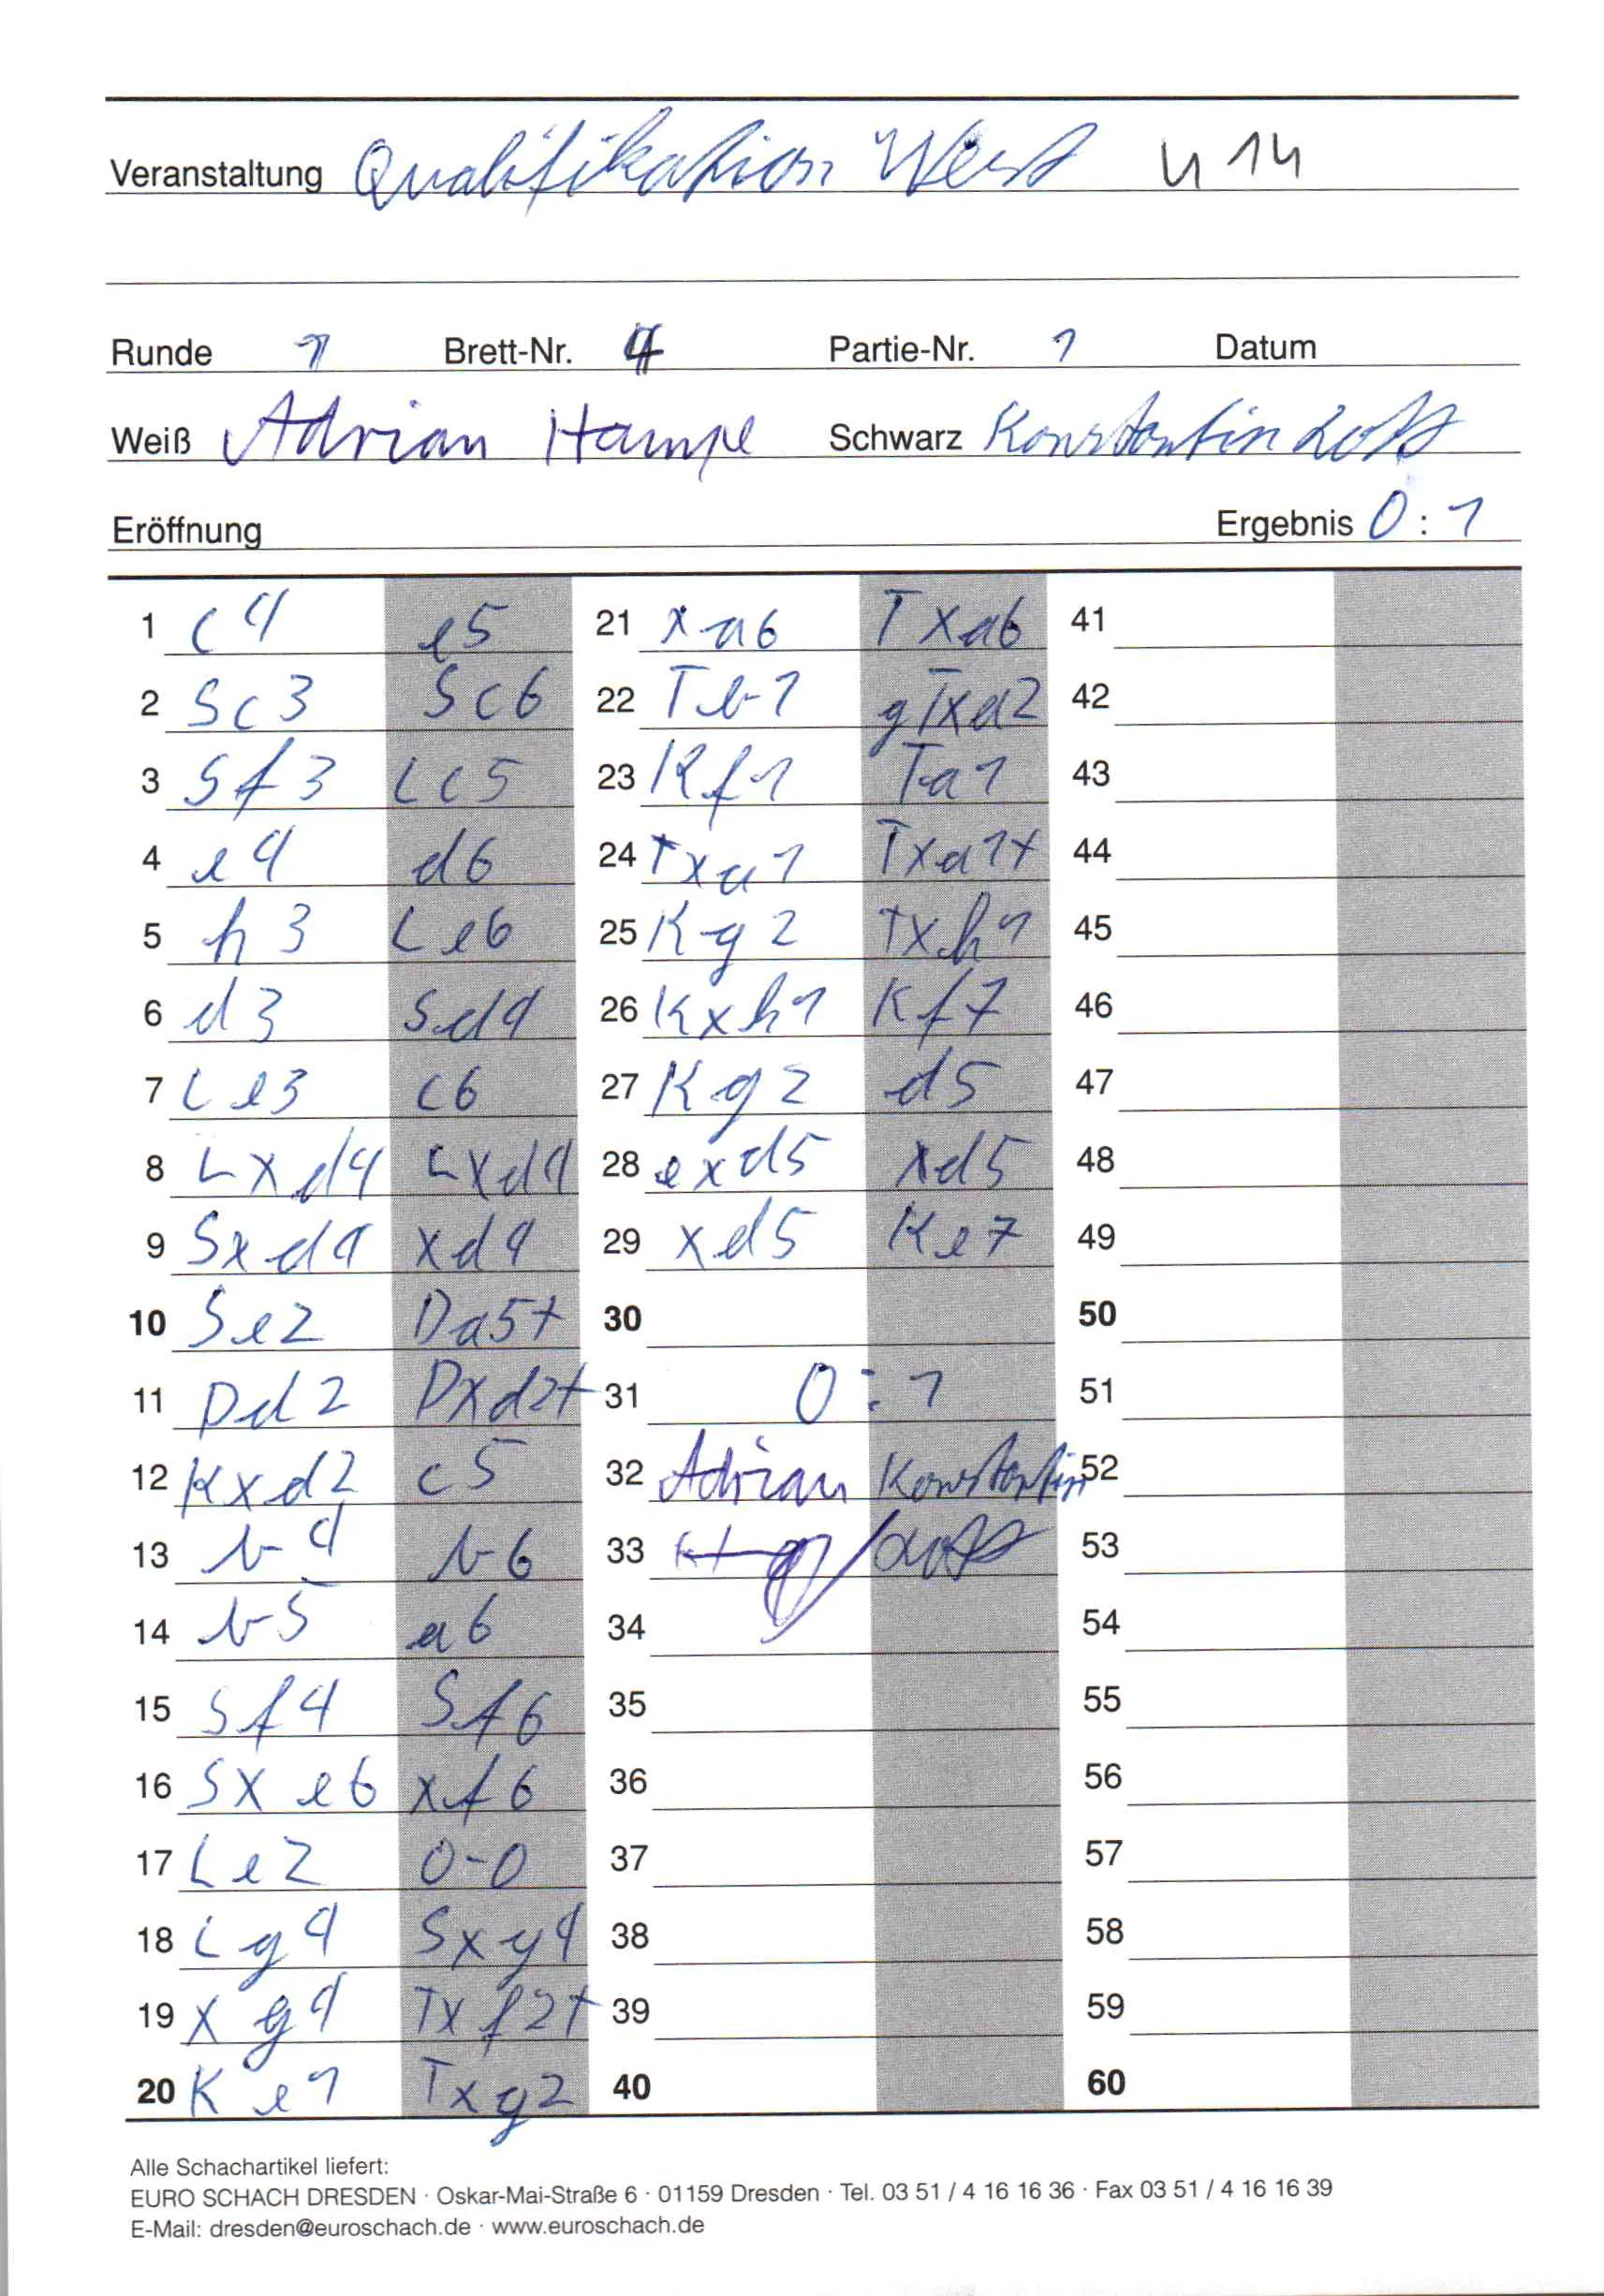 Veranstaltung Qualifikation West U14
Runde 1 Brett-Nr. 4 Partie-Nr. 1 Datum
Weiß Adrian Hampe Schwarz Konstantin
Eröffnung Ergebnis 0:1
1 c4 e5 21 xa6 Txa6 41
2 Sc3 Sc6 22 Tb1 gTxa2 42
3 Sf3 Lc5 23 Kf1 Ta1 43
4 e4 d6 24 Txa1 Txa1+ 44
5 h3 Le6 25 Kg2 Txh1 45
6 d3 Sd4 26 Kxh1 Kf7 46
7 Le3 c6 27 Kg2 d5 47
8 Lxd4 Lxd4 28 exd5 xd5 48
9 Sxd4 xd4 29 xd5 Ke7 49
10 Se2 Da5+ 30 50
11 Dd2 Dxd2+ 31 0:1 51
12 Kxd2 c5 32 Adrian Konstantin 52
13 b4 b6 33 53
14 b5 a6 34 54
15 Sf4 Sf6 35 55
16 Sxe6 xf6 36 56
17 Le2 0-0 37 57
18 Lg4 Sxg4 38 58
19 xg4 Txf2+ 39 59
20 Ke1 Txg2 40 60
Alle Schachartikel liefert:
EURO SCHACH DRESDEN · Oskar-Mai-Straße 6 · 01159 Dresden · Tel. 03 51 / 4 16 16 36 · Fax 03 51 / 4 16 16 39
E-Mail: dresden@euroschach.de · www.euroschach.de